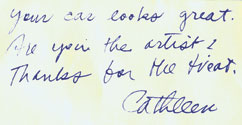 Your car looks great.
Are you the artist?
Thanks for the treat.
Cathleen